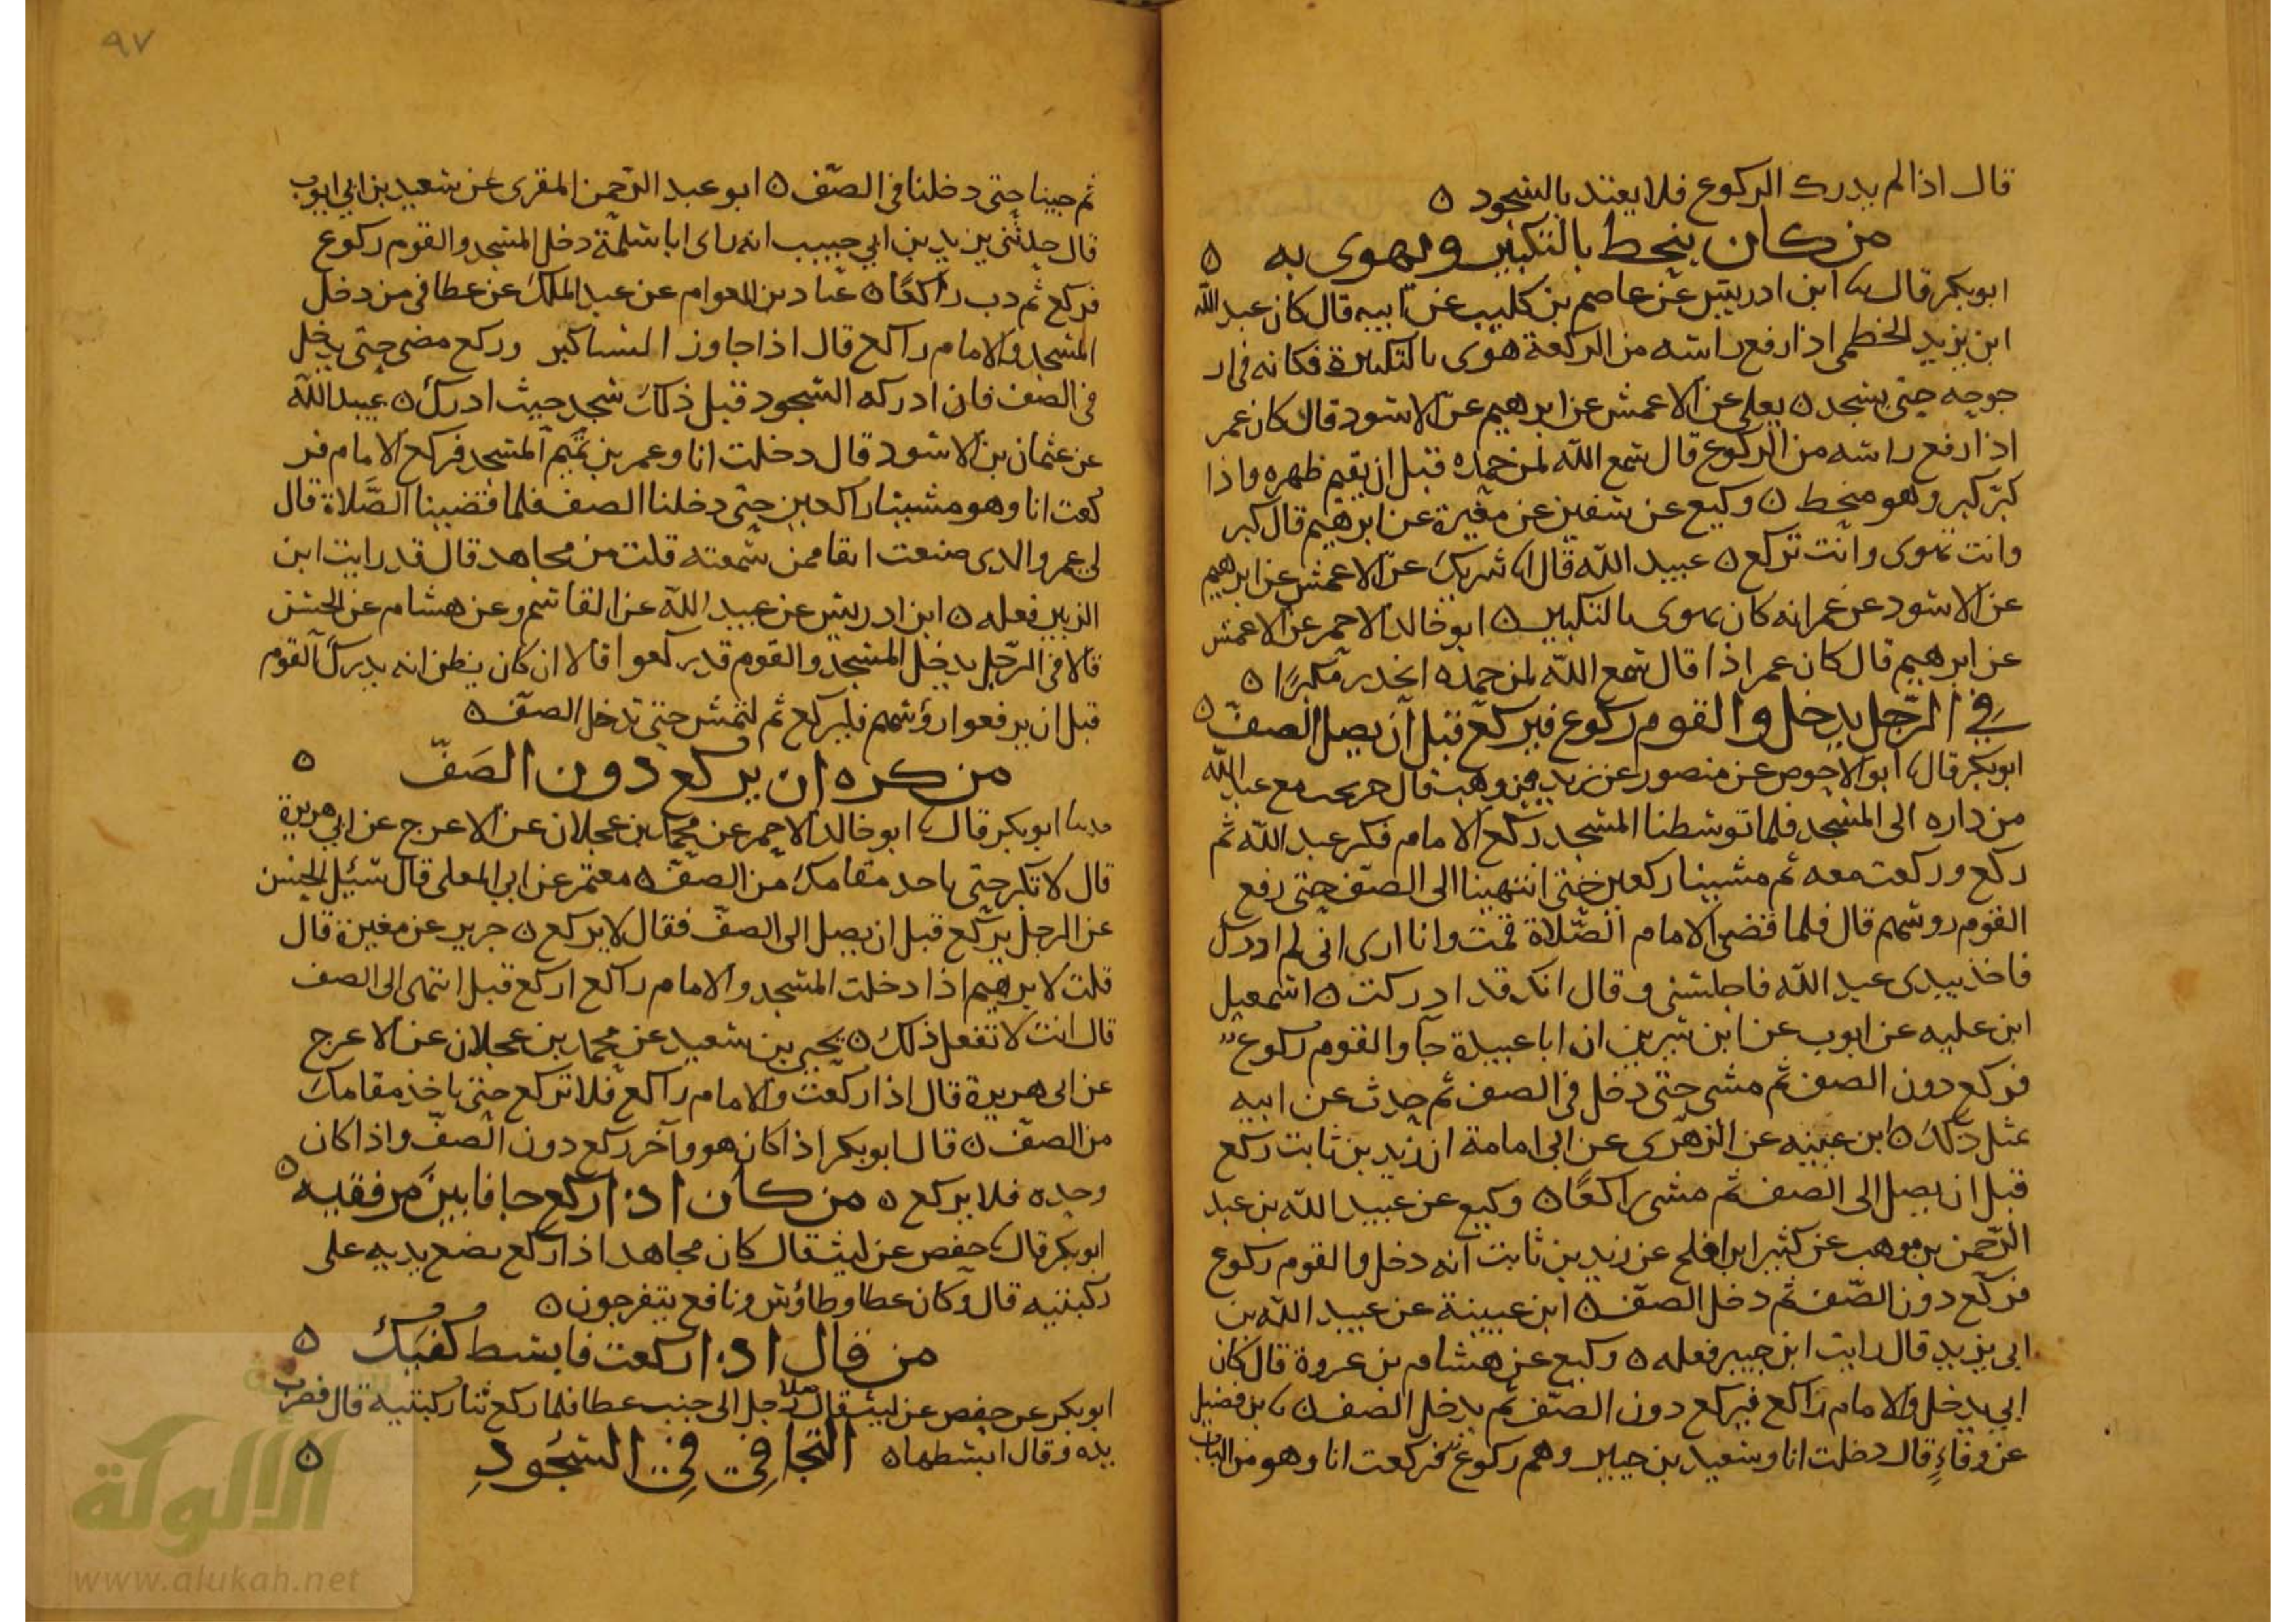 قال اذا لم يدرك الركوع فلا يعتد بالسجود ه
من كان ينحط بالتكبير ويهوى به ه
ابوبكر قال نا ابن ادريس عن عاصم بن كليب عن ابيه قال كان عبد الله
ابن يزيد الخطمى اذا رفع راسه من الركعة هوى بالتكبيرة فكانه فى ار
جوحه حتى يسجد ه يعلى عن الاعمش عن ابرهيم عن الاسود قال كان عمر
اذا رفع راسه من الركوع قال سمع الله لمن حمده قبل ان يقيم ظهره واذا
كبّر كبر وهو منحط ه وكيع عن سفين عن مغيرة عن ابرهيم قال كبر
وانت تهوى وانت تركع ه عبيد الله قال انا شريك عن الاعمش عن ابرهيم
عن الاسود عن عمر انه كان يهوى بالتكبير ه ابو خالد الاحمر عن الاعمش
عن ابرهيم قال كان عمر اذا قال سمع الله لمن حمده انحدر مكبرًا ه
فى الرّجل يدخل والقوم ركوع فيركع قبل ان يصل الصف ه
ابوبكر قال نا ابو الاحوص عن منصور عن زيد بن وهب قال خرجت مع عبد الله
من داره الى المسجد فلما توسطنا المسجد ركع الامام فكبر عبد الله ثم
ركع وركعت معه ثم مشينا راكعين حتى انتهينا الى الصّف حتى رفع
القوم روسهم قال فلما قضى الامام الصّلاة قمت وانا ارى انى لم ادرك
فاخذ بيدى عبد الله فاجلسنى وقال انك قد ادركت ه اسمعيل
ابن عليه عن ايوب عن ابن سيرين ان ابا عبيدة جا والقوم ركوع
فركع دون الصف ثم مشى حتى دخل فى الصف ثم حدث عن ابيه
بمثل ذلك ه ابن عيينه عن الزهرى عن ابى امامة ان زيد بن ثابت ركع
قبل ان يصل الى الصف ثم مشى راكعًا ه وكيع عن عبيد الله بن عبد
الرّحمن بن موهب عن كثير ابن افلح عن زيد بن ثابت انه دخل والقوم ركوع
فركع دون الصّف ثم دخل الصّف ه ابن عيينة عن عبيد الله بن
ابى يزيد قال رايت ابن جبير فعله ه وكيع عن هشام بن عروة قال كان
ابى يدخل والامام راكع فيركع دون الصّف ثم يدخل الصف ه نا بن فضيل
عن وقاءٍ قال دخلت انا وسعيد بن جبير وهم ركوع فركعت انا وهو من الباب
٩٧
ثم جينا حتى دخلنا فى الصّف ه ابو عبد الرّحمن المقرى عن سعيد بن ابى ايوب
قال حدثنى يزيد بن ابي حبيب انه راى ابا سلمة دخل المسجد والقوم ركوع
فركع ثم دب راكعًا ه عبّاد بن العوام عن عبد الملك عن عطا فى من دخل
المسجد والامام راكع قال اذا جاوز النسا كبر وركع مضى حتى يدخل
فى الصّف فان ادركه السّجود قبل ذلك سجد حيث ادرك ه عبيد الله
عن عثمان بن الاسود قال دخلت انا وعمر بن تميم المسجد فركع الامام فر
كعت انا وهو مشينا راكعين حتى دخلنا الصف فلما قضينا الصّلاة قال
لى عمر والذى صنعت انفا ممن سمعته قلت من مجاهد قال قد رايت ابن
الزبير فعله ه ابن ادريس عن عبيد الله عن القاسم وعن هشام عن الحسن
قالا فى الرّجل يدخل المسجد والقوم قد ركعوا قالا ان كان يظن انه يدرك القوم
قبل ان يرفعوا رؤسهم فليركع ثم لتمش حتى تدخل الصفّ ه
من كره ان يركع دون الصَفّ ه
حدثنا ابوبكر قال نا ابو خالد الاحمر عن محمد بن عجلان عن الاعرج عن ابى هريرة
قال لا تكبر حتى ياخذ مقامك من الصفّ ه معتمر عن ابي المعلى قال سئيل الحسن
عن الرجل يركع قبل ان يصل الى الصفّ فقال لا يركع ه جرير عن مغيرة قال
قلت لابرهيم اذا دخلت المسجد والامام راكع اركع قبل انتهى الى الصف
قال انت لا تفعل ذلك ه يحيى بن سعيد عن محمد بن عجلان عن الاعرج
عن ابى هريرة قال اذا ركعت والامام راكع فلا تركع حتى ياخذ مقامك
من الصفّ ه قال ابوبكر اذا كان هو وآخر ركع دون الصفّ واذا كان
وحده فلا يركع ه من كان اذا ركع جافا بين مرفقيه ه
ابوبكر قال نا حفص عن ليث قال كان مجاهد اذا ركع يضع يديه على
ركبتيه قال وكان عطا وطاؤس ونافع يتفرجون ه
من قال اذا ركعت فابسط كفيك ه
ابوبكر عن حفص عن ليث قال صلا رجل الى جنب عطا فلما ركع ثنا ركبتيه قال فضرب
يده وقال ابسطها ه التجافي في السُجُودِ ه
الألوكة
www.alukah.net